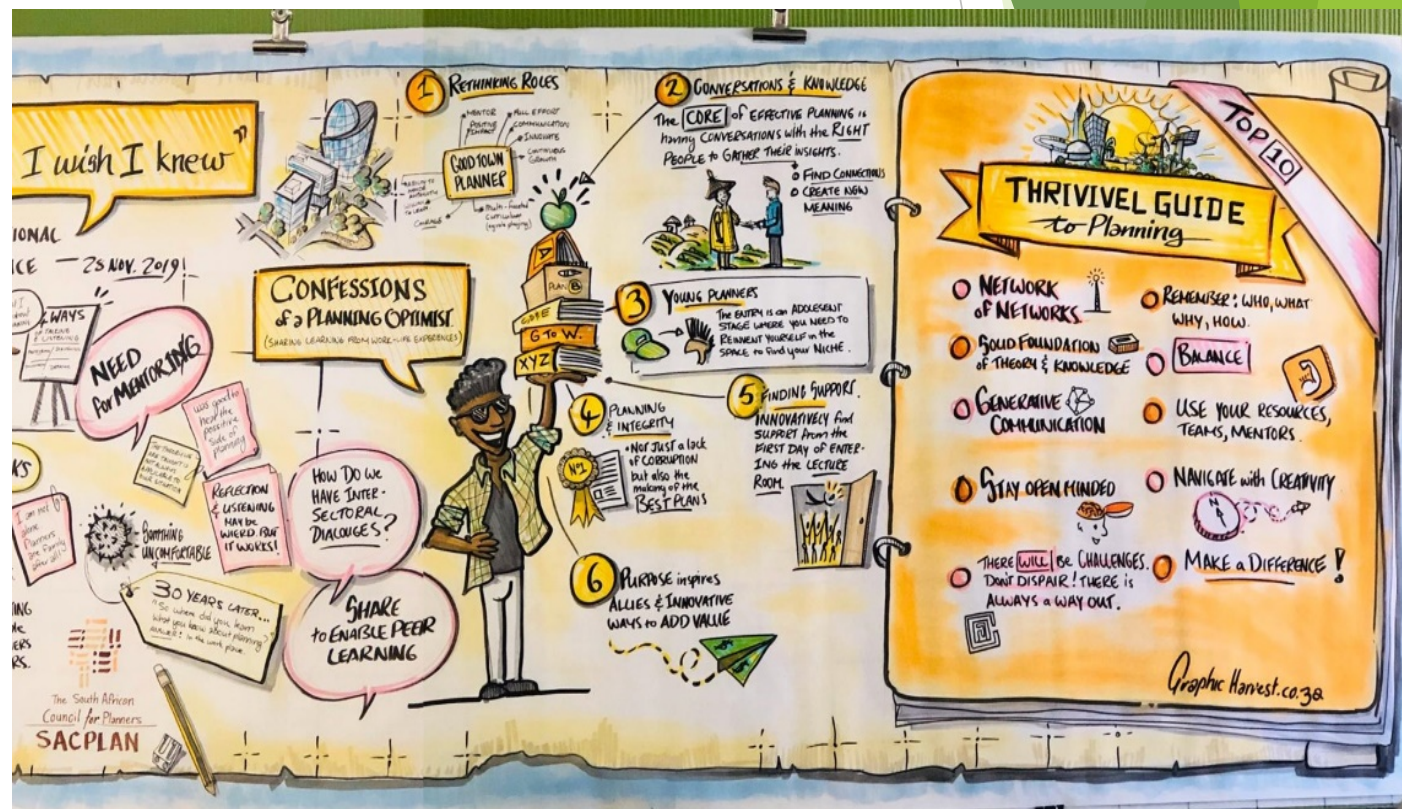 I wish I knew"
IONAL
CE — 28 NOV. 2019!
4 WAYS
of TALKING
& LISTENING
NEED
for MENTORING
was good to
hear the
possitive
side of
planning
REFLECTION
& LISTENING
MAY be
WIERD. BUT
IT WORKS!
KS
I am not
alone
Planners
are family
after all!
SOMTHING
UNCOMFORTABLE
30 YEARS LATER...
"So where did you learn
what you know about planning?"
ANSWER: in the work place.
The South African
Council for Planners
SACPLAN
1 RETHINKING ROLES
MENTOR
POSITIVE
IMPACT
FULL EFFORT
COMMUNICATION
INNOVATE
CONTINUOUS
GROWTH
GOOD TOWN
PLANNER
COURAGE
Multi-faceted
curriculum
CONFESSIONS
of a PLANNING OPTIMIST
(SHARING LEARNING FROM WORK-LIFE EXPERIENCES)
HOW DO WE
HAVE INTER-
SECTORAL
DIALOUGES?
SHARE
to ENABLE PEER
LEARNING
PLAN B
G TO W.
XYZ
2 CONVERSATIONS & KNOWLEDGE
The CORE of EFFECTIVE PLANNING is
having CONVERSATIONS with the RIGHT
PEOPLE to GATHER THEIR INSIGHTS.
FIND CONNECTIONS
CREATE NEW
MEANING
3 YOUNG PLANNERS
THE ENTRY is an ADOLESENT
STAGE WHERE YOU NEED TO
REINVENT YOURSELF in the
SPACE to find your NICHE.
4 PLANNING
& INTEGRITY
• NOT JUST a lack
of CORRUPTION
but also the
making of the
BEST PLANS
No1
5 FINDING SUPPORT.
INNOVATIVELY find
SUPPORT from the
FIRST DAY OF ENTER-
ING the LECTURE
ROOM.
6 PURPOSE inspires
ALLIES & INNOVATIVE
WAYS to ADD VALUE
TOP 10
THRIVIVEL GUIDE
to Planning
NETWORK
of NETWORKS.
SOLID FOUNDATION
OF THEORY & KNOWLEDGE
GENERATIVE
COMMUNICATION
STAY OPEN MINDED
THERE WILL BE CHALLENGES.
DON'T DISPAIR! THERE is
ALWAYS a WAY OUT.
REMEMBER: WHO, WHAT
WHY, HOW.
BALANCE
USE YOUR RESOURCES,
TEAMS, MENTORS.
NAVIGATE with CREATIVITY
N
MAKE a DIFFERENCE!
Graphic Harvest.co.za